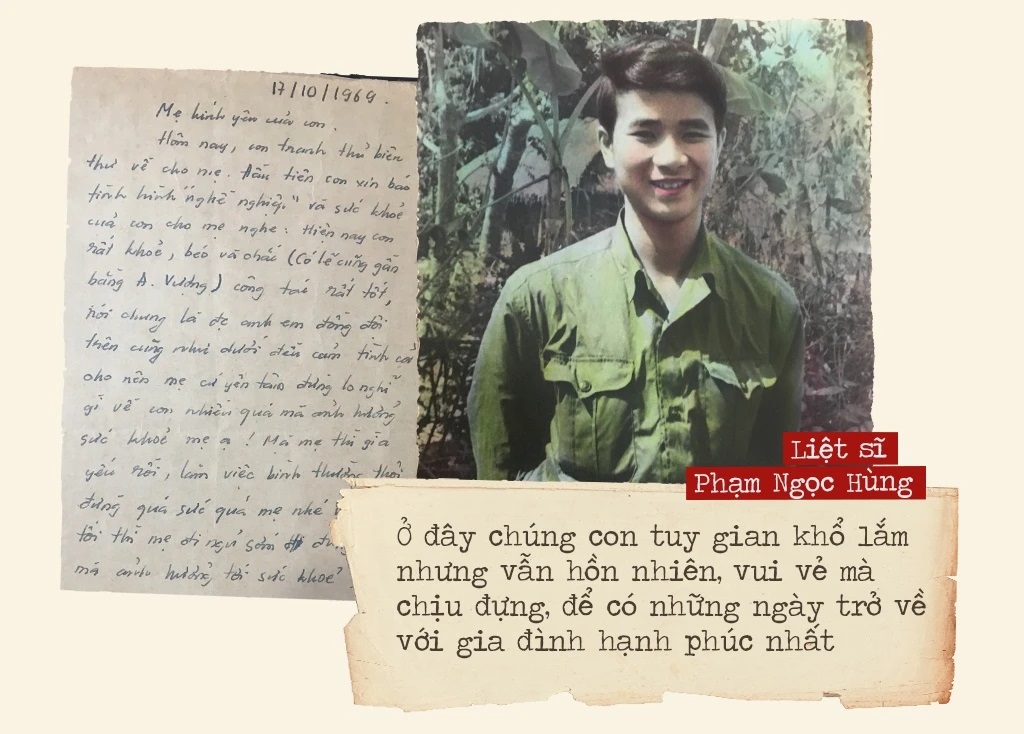 17/10/1969.
Mẹ kính yêu của con.
Hôm nay, con tranh thủ biên
thư về cho mẹ. Đầu tiên con xin báo
tình hình "nghề nghiệp" và sức khỏe
của con cho mẹ nghe: Hiện nay con
rất khỏe, béo và chắc (Có lẽ cũng gần
bằng A. Vượng) công tác rất tốt,
nói chung là được anh em đồng đội
trên cũng như dưới đều cảm tình cả
cho nên mẹ cứ yên tâm đừng lo nghĩ
gì về con nhiều quá mà ảnh hưởng
sức khỏe mẹ ạ! Mà mẹ thì già
yếu rồi, làm việc bình thường thôi
đừng quá sức quá mẹ nhé
tối thì mẹ đi ngủ sớm
mà ảnh hưởng tới sức khỏe
Liệt sĩ
Phạm Ngọc Hùng
Ở đây chúng con tuy gian khổ lắm
nhưng vẫn hồn nhiên, vui vẻ mà
chịu đựng, để có những ngày trở về
với gia đình hạnh phúc nhất